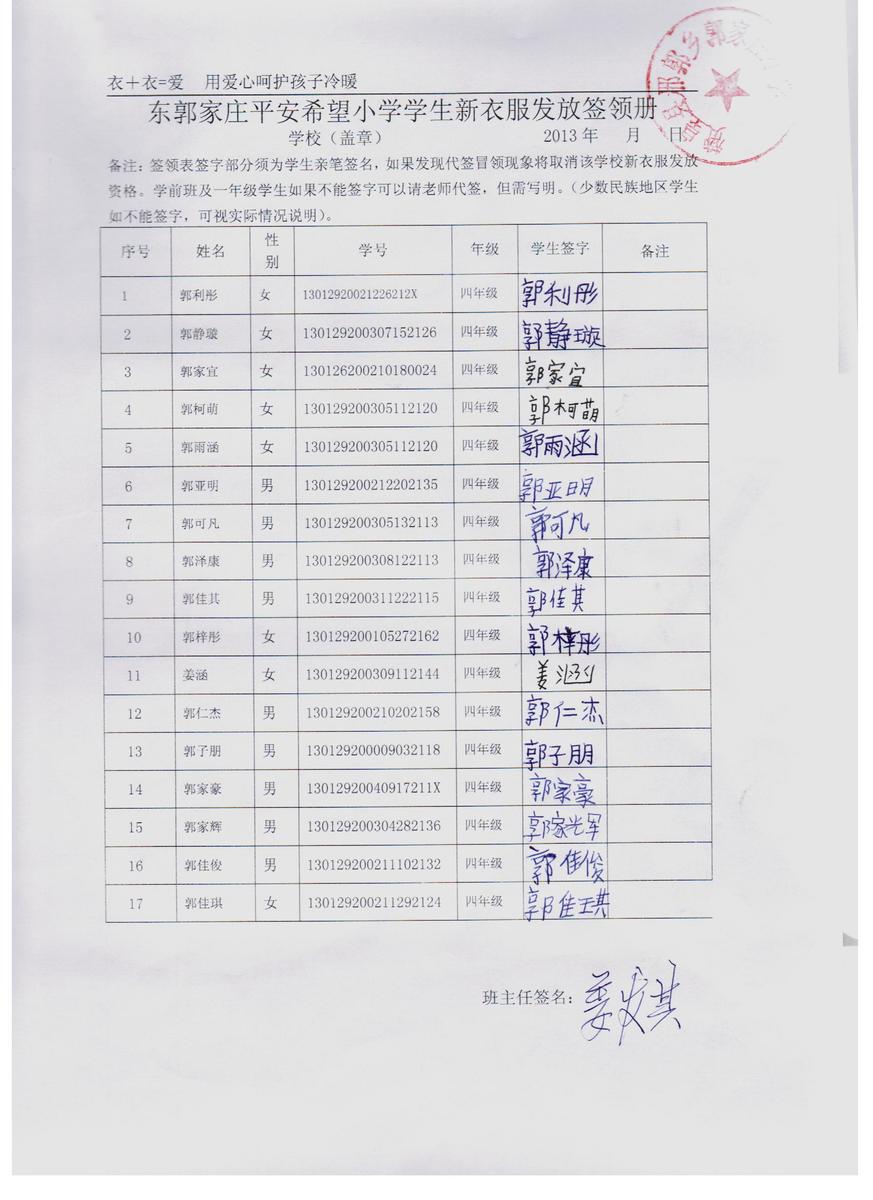 衣+衣=爱 用爱心呵护孩子冷暖
东郭家庄平安希望小学学生新衣服发放签领册
学校（盖章） 2013年 月 日
备注：签领表签字部分须为学生亲笔签名，如果发现代签冒领现象将取消该学校新衣服发放
资格。学前班及一年级学生如果不能签字可以请老师代签，但需写明。（少数民族地区学生
如不能签字，可视实际情况说明）。
序号 姓名 性别 学号 年级 学生签字 备注
1 郭利彤 女 13012920021226212X 四年级 郭利彤
2 郭静璇 女 130129200307152126 四年级 郭静璇
3 郭家宜 女 130126200210180024 四年级 郭家宜
4 郭柯萌 女 130129200305112120 四年级 郭柯萌
5 郭雨涵 女 130129200305112120 四年级 郭雨涵
6 郭亚明 男 130129200212202135 四年级 郭亚明
7 郭可凡 男 130129200305132113 四年级 郭可凡
8 郭泽康 男 130129200308122113 四年级 郭泽康
9 郭佳其 男 130129200311222115 四年级 郭佳其
10 郭梓彤 女 130129200105272162 四年级 郭梓彤
11 姜涵 女 130129200309112144 四年级 姜涵
12 郭仁杰 男 130129200210202158 四年级 郭仁杰
13 郭子朋 男 130129200009032118 四年级 郭子朋
14 郭家豪 男 13012920040917211X 四年级 郭家豪
15 郭家辉 男 130129200304282136 四年级 郭家辉
16 郭佳俊 男 130129200211102132 四年级 郭佳俊
17 郭佳琪 女 130129200211292124 四年级 郭佳琪
班主任签名：